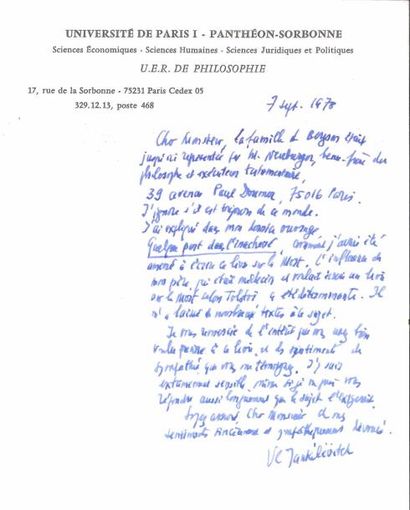 UNIVERSITÉ DE PARIS I - PANTHÉON-SORBONNE
Sciences Économiques - Sciences Humaines - Sciences Juridiques et Politiques
U.E.R. DE PHILOSOPHIE
17, rue de la Sorbonne - 75231 Paris Cedex 05
329.12.13, poste 468
7 sept. 1978
Cher Monsieur, la famille de Bergson était
jusqu'ici représentée par M. Neuburger, beau-frère du
philosophe et exécuteur testamentaire,
39 avenue Paul Doumer, 75016 Paris.
J'ignore s'il est toujours de ce monde.
J'ai expliqué dans mon dernier ouvrage
Quelque part dans l'inachevé, comment j'avais été
amené à écrire ce livre sur la Mort. L'influence de
mon père, qui était médecin et voulait écrire un livre
sur la Mort selon Tolstoï, a été déterminante. Il
m'a laissé de nombreux textes à ce sujet.
Je vous remercie de l'intérêt que vous avez bien
voulu prendre à ce livre, et des sentiments de
sympathie que vous me témoignez. J'y suis
extrêmement sensible, même si je ne puis vous
répondre aussi longuement que le sujet l'exigerait.
Soyez assuré, Cher Monsieur, de mes
sentiments sincèrement et sympathiquement dévoués.
Vl. Jankélévitch